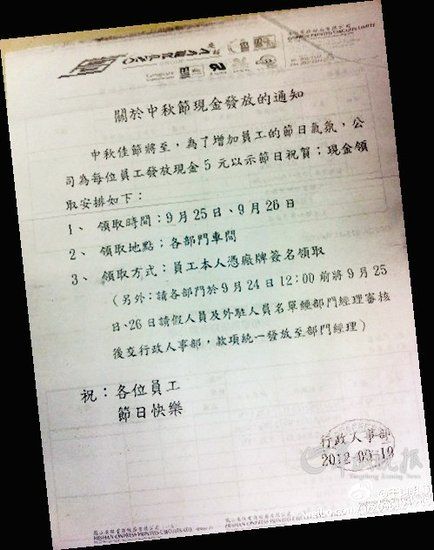 ONPRESS
關於中秋節現金發放的通知
中秋佳節將至，為了增加員工的節日氣氛，公
司為每位員工發放現金5元以示節日祝賀；現金領
取安排如下：
1、領取時間：9月25日、9月26日
2、領取地點：各部門車間
3、領取方式：員工本人憑廠牌簽名領取
（另外：請各部門於9月24日12:00前將9月25
日、26日請假人員及外駐人員名單經部門經理審核
後交行政人事部，款項統一發放至部門經理）
祝：各位員工
節日快樂
行政人事部
2012-09-19
羊城晚报
HESHAN ONPRESS PRINTED CIRCUITS LTD.